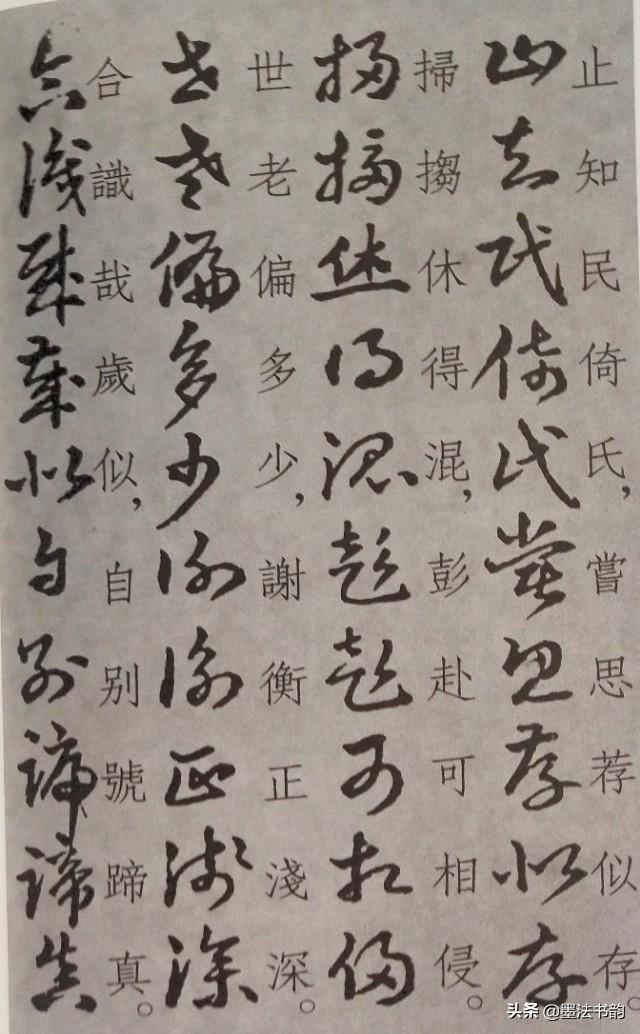 止知民倚氏，嘗思荐似存。
掃搊休得混，彭赴可相侵。
世老偏多少，謝衡正淺深。
合識哉歲似，自别號蹄真。
头条 @墨法书韵